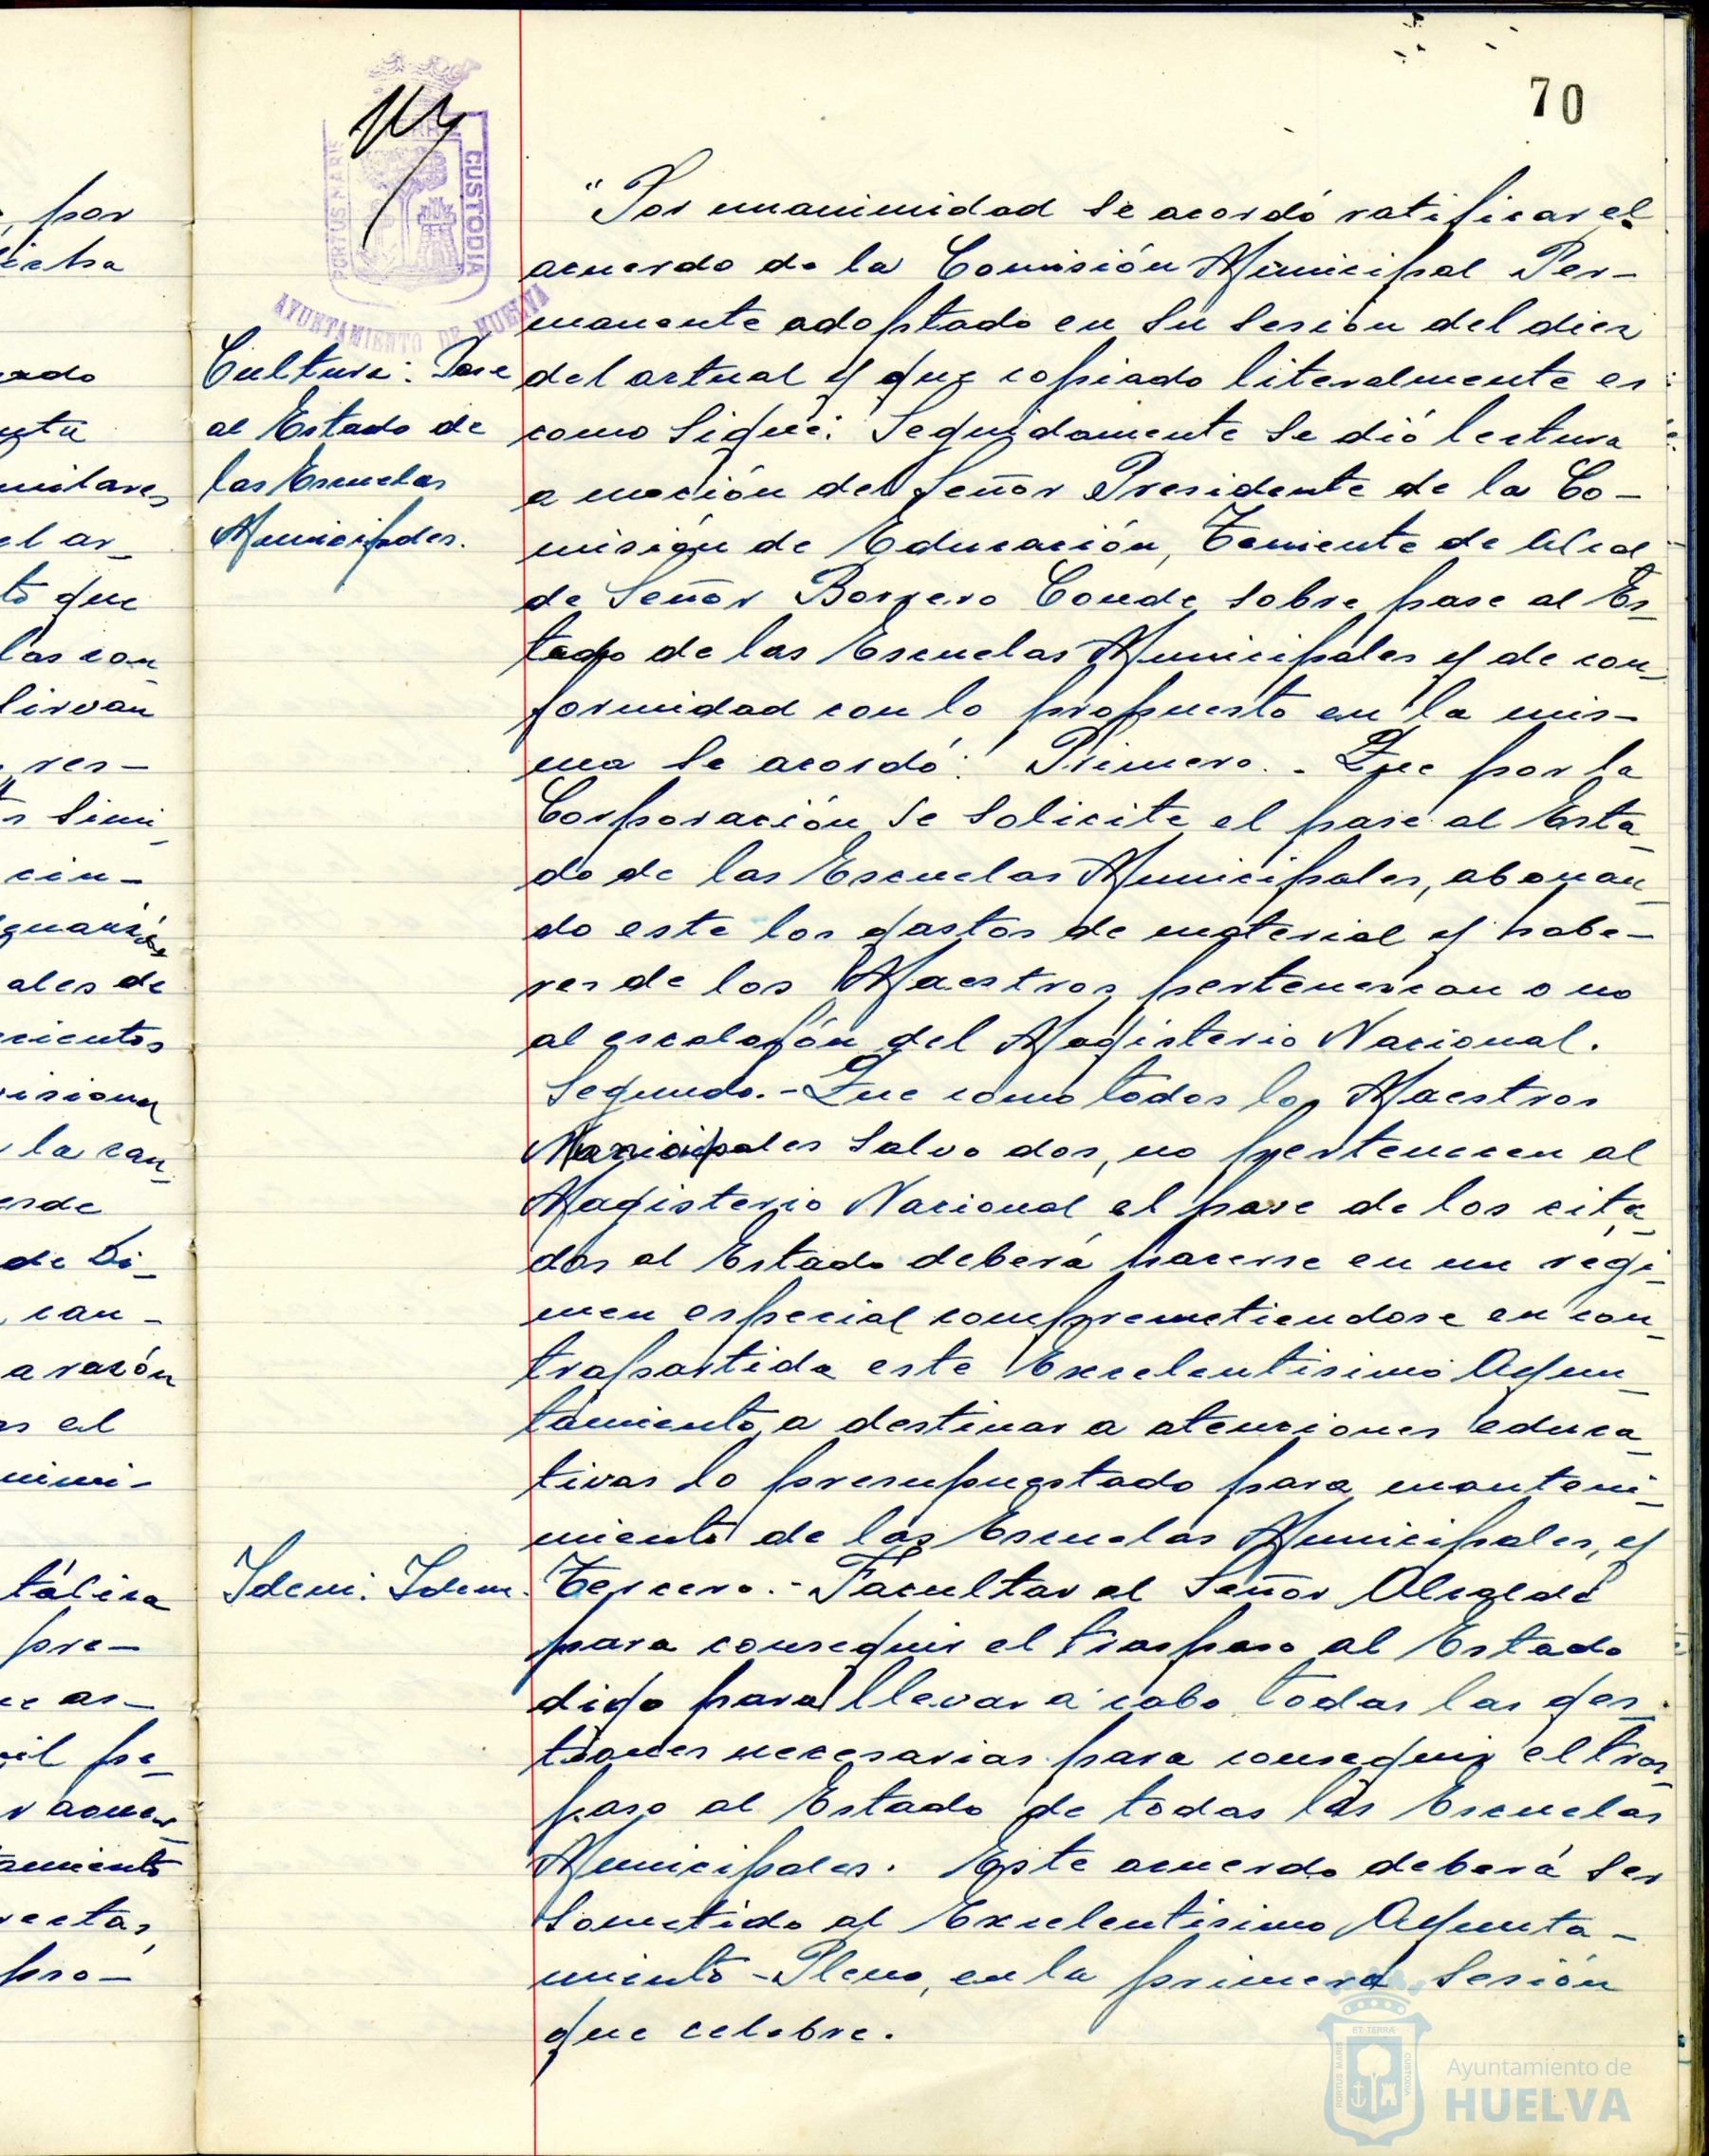 70
PORTUS MARIS
CUSTODIA
AYUNTAMIENTO DE HUELVA
Cultura: Pase
al Estado de
las Escuelas
Municipales.
"Por unanimidad se acordó ratificar el
acuerdo de la Comisión Municipal Per-
manente adoptado en su sesión del diez
del actual y que copiado literalmente es
como sigue: Seguidamente se dió lectura
a moción del Señor Presidente de la Co-
misión de Educación, Teniente de Alcal
de Señor Borrero Conde, sobre pase al Es-
tado de las Escuelas Municipales y de con-
formidad con lo propuesto en la mis-
ma se acordó: Primero.- Que por la
Corporación se solicite el pase al Esta-
do de las Escuelas Municipales, abonan-
do este los gastos de material y habe-
res de los Maestros, pertenezcan o no
al escalafón del Magisterio Nacional.
Segundo.- Que como todos los Maestros
Municipales salvo dos, no pertenecen al
Magisterio Nacional el pase de los cita-
dos al Estado deberá hacerse en un regi-
men especial comprometiendose en con-
trapartida este Excelentisimo Ayun-
tamiento, a destinar a atenciones educa-
tivas lo presupuestado para manteni-
miento de las Escuelas Municipales, y
Idem: Idem.
Tercero.- Facultar al Señor Alcalde
para conseguir el traspaso al Estado
digo para llevar a cabo todas las ges-
tiones necesarias para conseguir el tras-
paso al Estado de todas las Escuelas
Municipales. Este acuerdo deberá ser
sometido al Excelentisimo Ayunta-
miento-Pleno, en la primera sesión
que celebre.
, por
que
las con
sirvan
res-
cin-
ales de
la can
de Di-
can-
a razón
el
pre-
pro-
ET TERRA
PORTUS MARIS
CUSTODIA
Ayuntamiento de
HUELVA